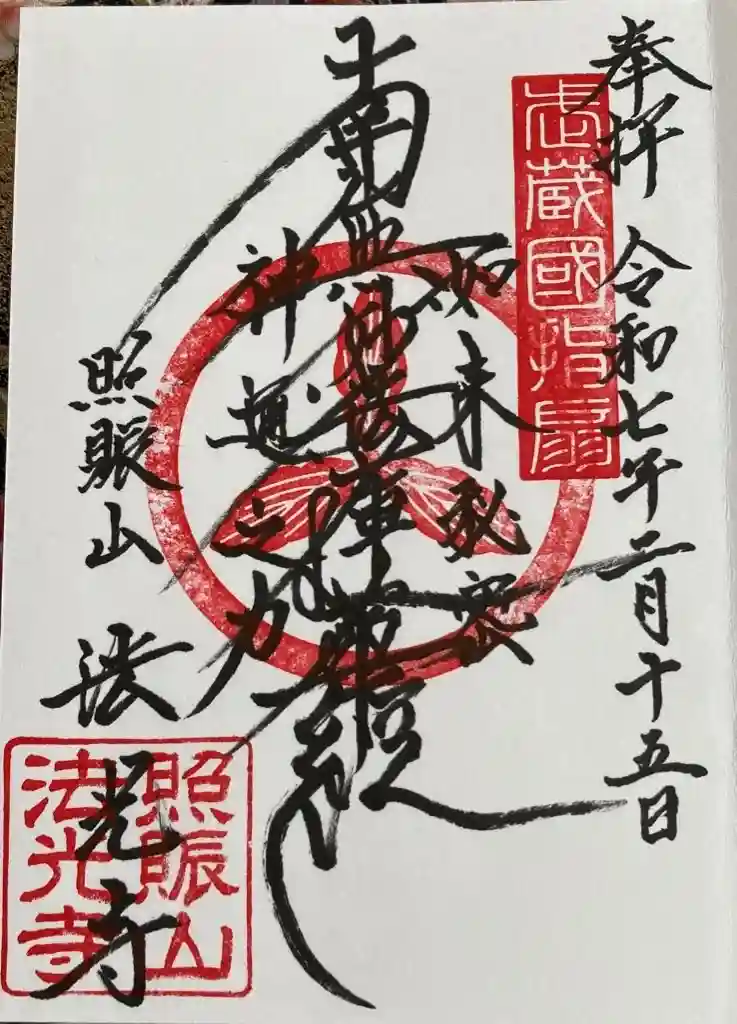 奉拝 令和七年二月十五日
武蔵國指扇
如来秘密
南無妙法蓮華経
神通之力
照賑山 法光寺
照賑山
法光寺